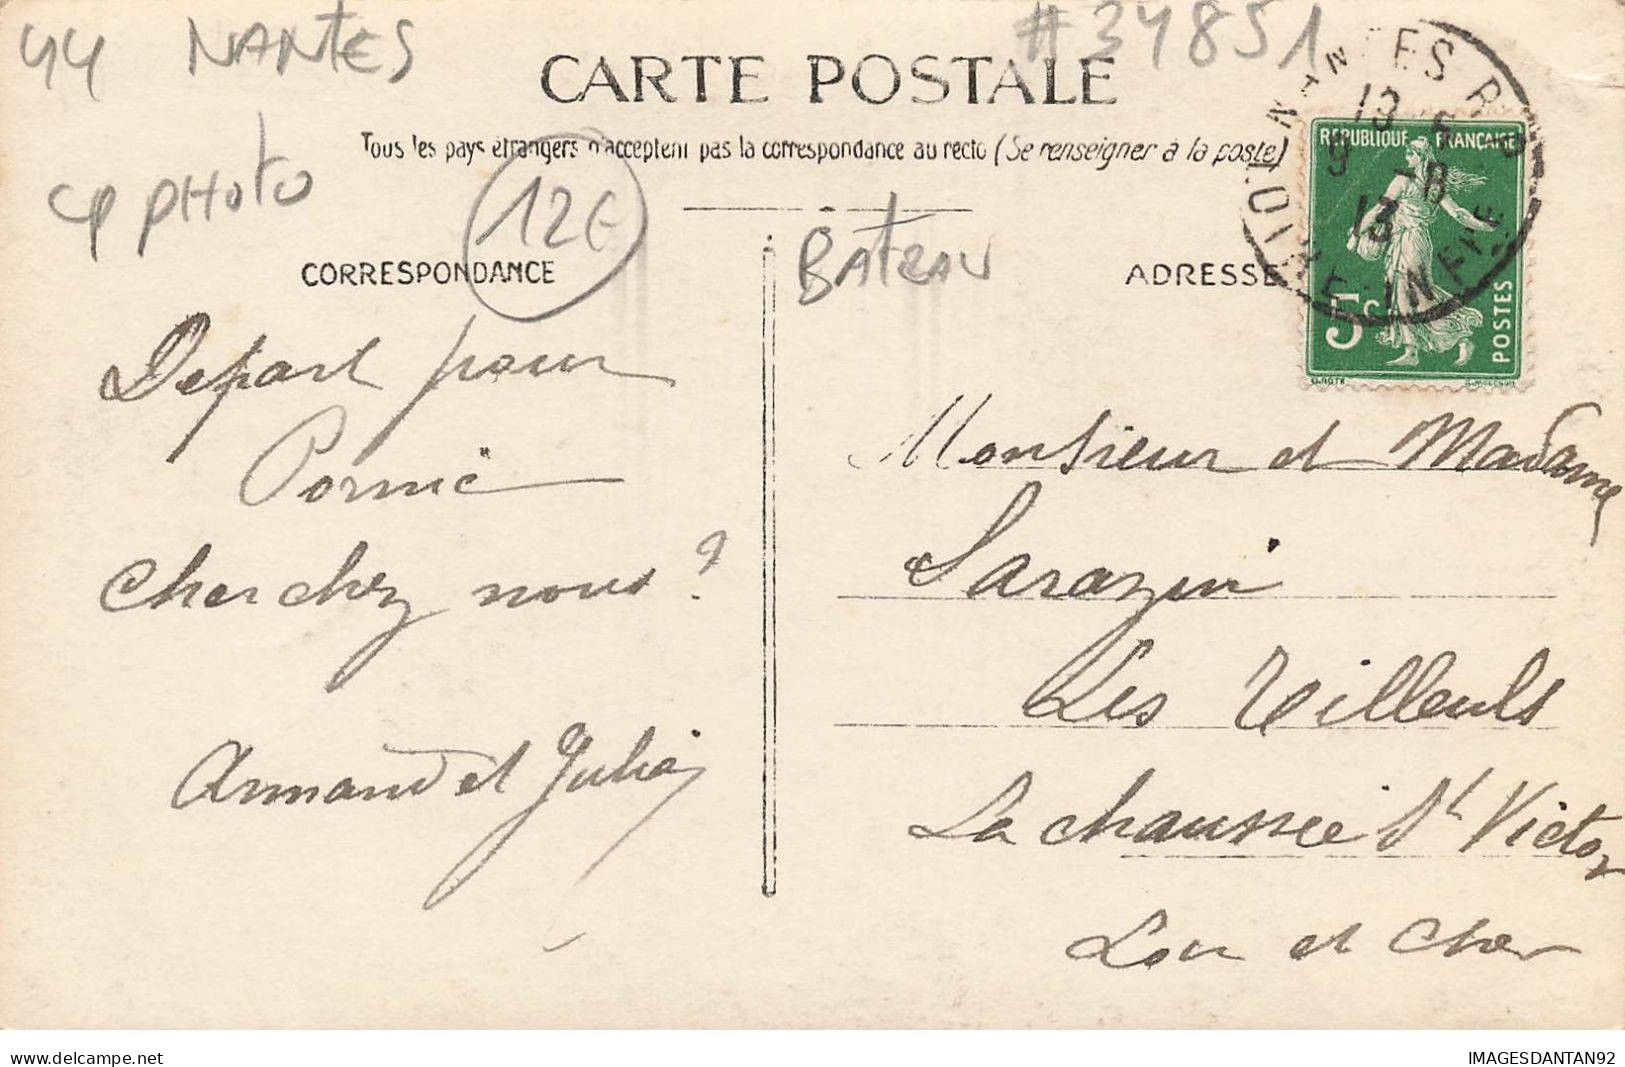 44 NANTES
#34851
CARTE POSTALE
Tous les pays étrangers n'acceptent pas la correspondance au recto (Se renseigner à la poste)
CP PHOTO
12€
BATEAU
CORRESPONDANCE
ADRESSE
NANTES R.P.
LOIRE-INFRE
13
9 -8
13
REPUBLIQUE FRANÇAISE
5c
POSTES
Depart pour
Pornic
Cherchez nous?
Armand et Julia
Monsieur et Madame
Sarazin
Les Tilleuls
La chaussée St Victor
Loir et Cher
www.delcampe.net
IMAGESDANTAN92